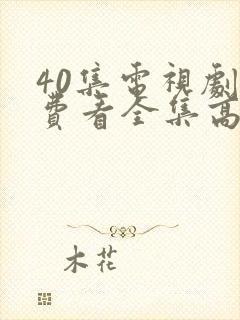 40集電視劇
費看全集高
木花